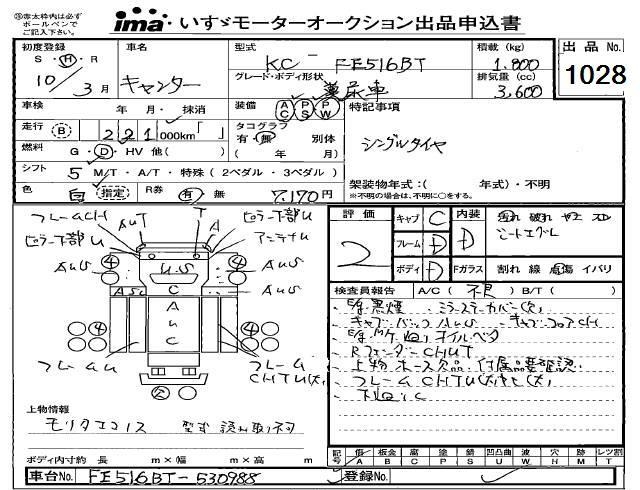 ※赤太枠内は必ず
ボールペンで
ご記入下さい。
ima いすゞモーターオークション出品申込書
初度登録 S・H・R 10/3月
車名 キャンター
型式 KC-FE516BT
積載(kg) 1,800
出品No. 1028
グレード・ボディ形状 糞尿車
排気量(cc) 3,600
車検 年 月・抹消
装備 AC PS PW
特記事項
走行 B 221 000km「 」
タコグラフ 有・無 別体 ( 年 月)
シングルタイヤ
燃料 G・D・HV 他( )
シフト 5 M/T・A/T・特殊(2ペダル・3ペダル)
架装物年式:( 年式)・不明
※不明の場合は、不明に○をする。
色 白 指定 R券 有 無 7,170円
評価 2
キャブ C
フレーム D
ボディ D
内装 D
汚れ 破れ ヤケ スレ
シートエグレ
Fガラス 割れ 線 点傷 イバリ
フレームCH
AUT
T
A
ピラー下部U
ピラー下部U
アンテナU
AUS
U.S
AUS
ASC
C
AUS
A
U
C
フレームU
フレーム
CHTU(大)
検査員報告 A/C(不良) B/T( )
・E/g黒煙 ・ミラーステーカバー欠
・キャブバックAUS ・キャブコアCH
・E/g・M/Tケ ねりオイルベタ
・RフェンダーCHUT
・上物ホース欠品・付属品要確認
・フレームCHTU(大)サビ(大)
・下廻りC
上物情報
モリタエコノス 型式 読み取り不可
ボディ内寸 約 長 m×幅 m×高 m
記号 傷 A 板金 B 腐 C 塗 P 錆 S 凹凸曲 U 波 W 穴 H 跡 M レツ割 T
車台No. FE516BT-530988
登録No.